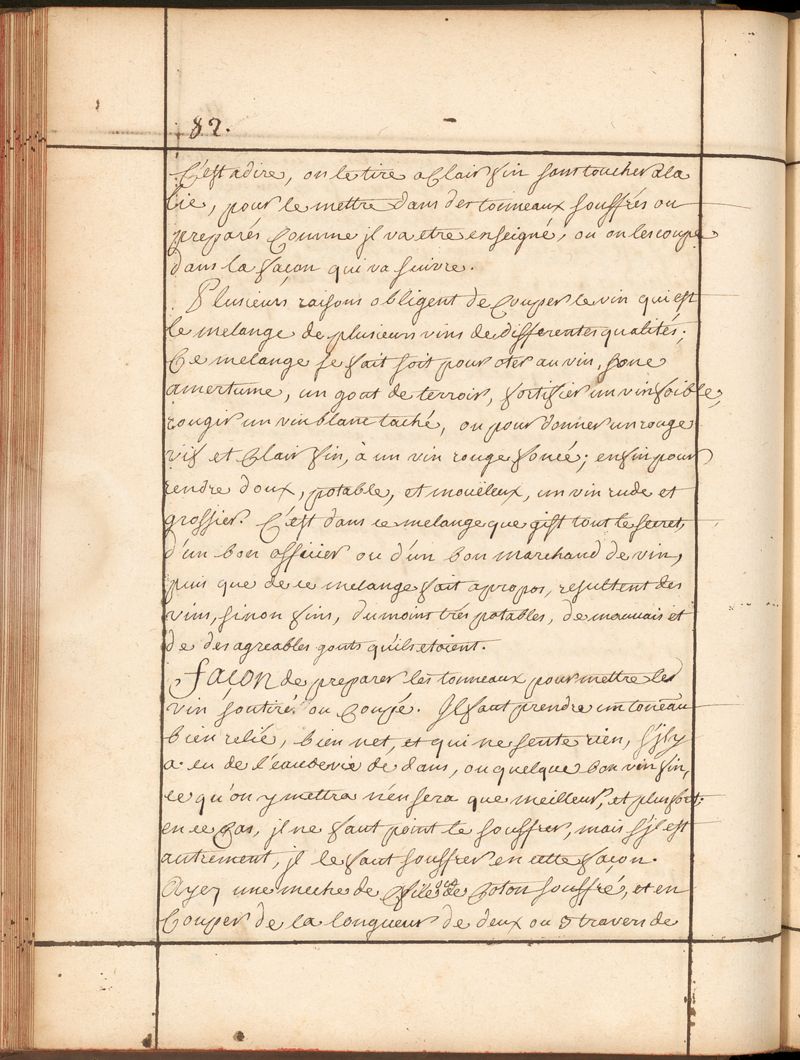 82.
C'est adire, on le tire a Clair fin sans toucher a la
lie, pour le mettre dans des tonneaux souffrés ou
preparés Comme jl va etre enseigné, ou on les coupe
dans la façon qui va suivre.
Plusieurs raisons obligent de Couper le vin qui est
le melange de plusieurs vins de differentes qualités;
Ce melange se fait soit pour oter au vin, sone
amertume, un gout de terroir, fortifier un vin foible,
rougir un vin blanc taché, ou pour donner un rouge
vif et Clair fin, à un vin rouge foncé; enfin pour
rendre doux, potable, et mouëleux, un vin rude et
grossier. C'est dans ce melange que gist tout le secret,
d'un bon officier ou d'un bon marchand de vin,
puis que de ce melange fait apropos, resultent des
vins, sinon fins, du moins trés potables, de mauvais et
de desagreables gouts qu'ils etoient.
Façon de preparer les tonneaux pour mettre les
vin soutiré ou Coupé. Jl faut prendre un toneau
bien relié, bien net, et qui ne sente rien, s'jl y
a eu de l'eau de vie de dans, ou quelque bon vin fin,
ce qu'on y mettra n'en sera que meilleur, et plus fort:
en ce Cas, jl ne faut point le souffrer, mais s'jl est
autrement, jl le faut souffrer en cette façon.
Ayez une meche de file de Coton souffré, et en
Couper de la longueur de deux ou 3 travers de